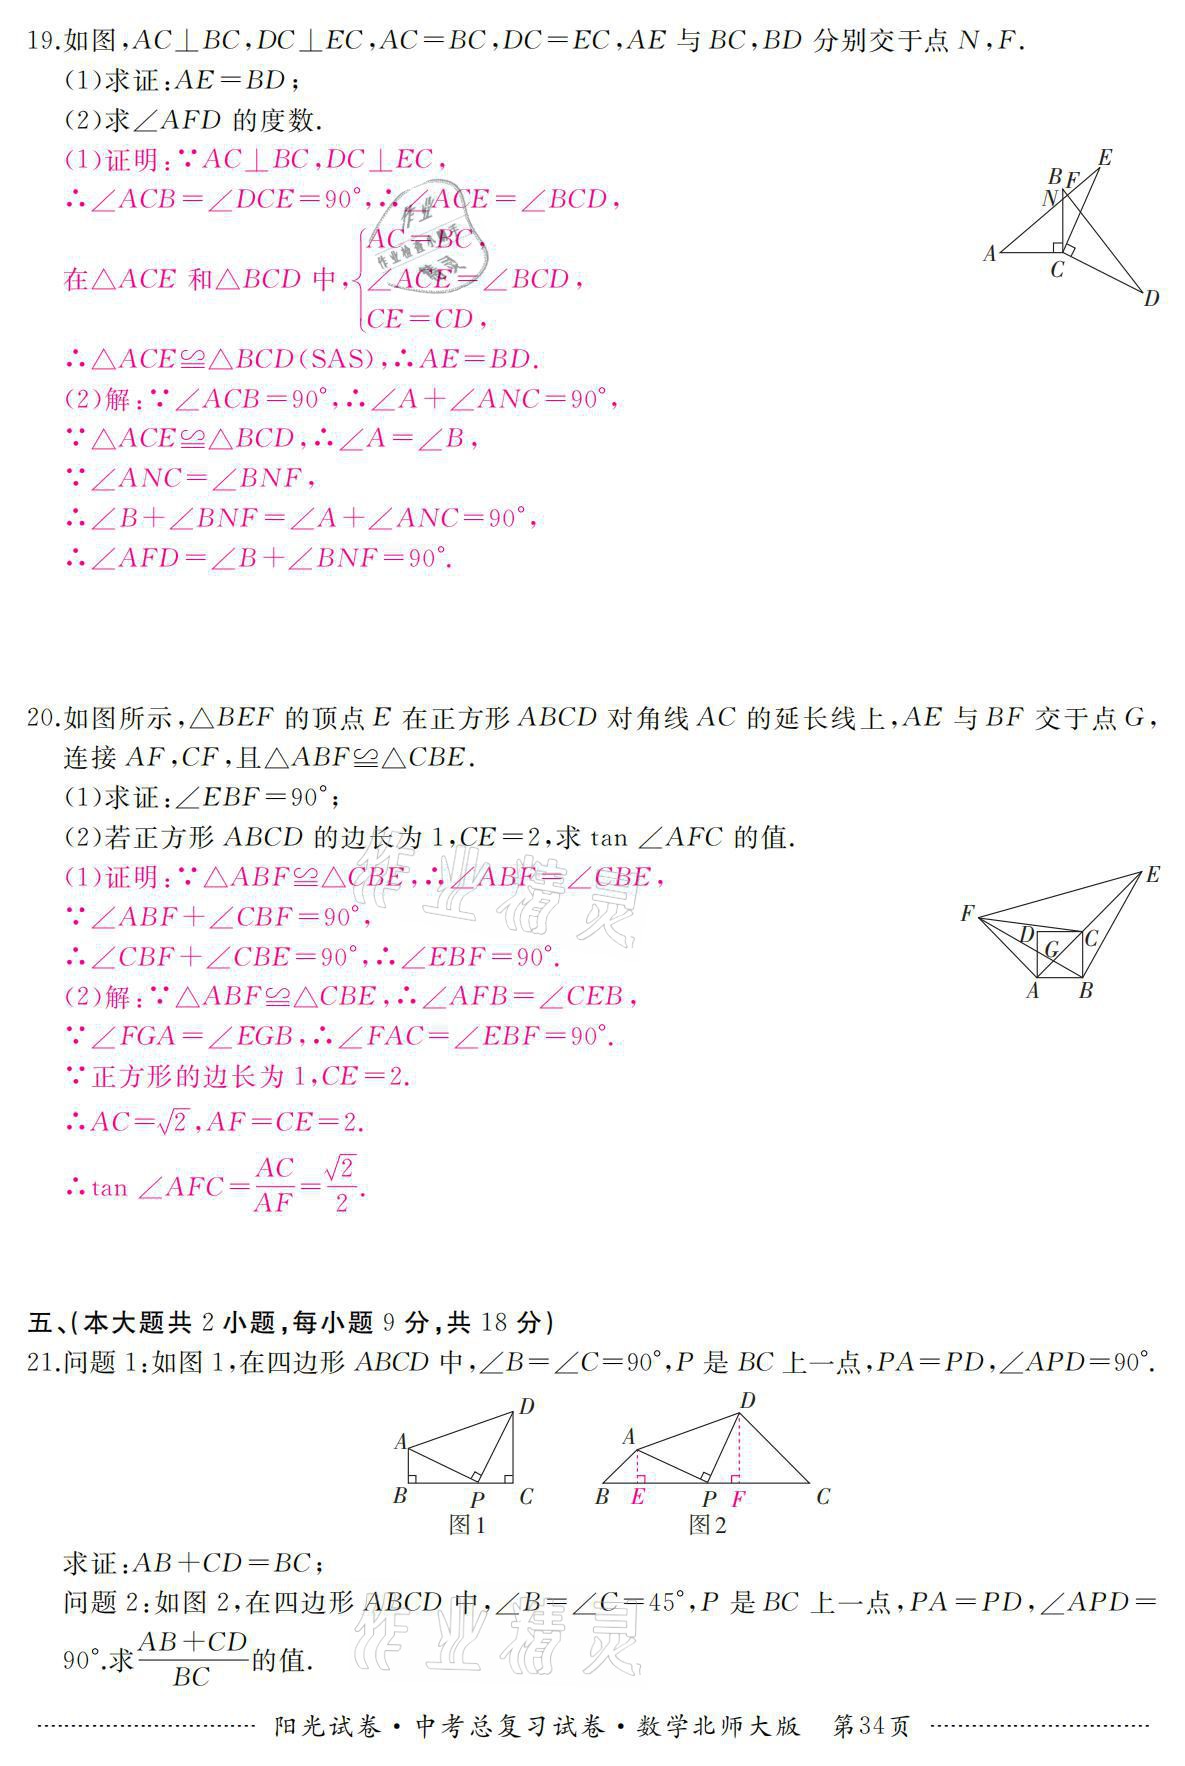 19.如图,AC⊥BC,DC⊥EC,AC=BC,DC=EC,AE 与 BC,BD 分别交于点 N,F.
(1)求证:AE=BD;
(2)求∠AFD 的度数.
(1)证明:∵AC⊥BC,DC⊥EC,
∴∠ACB=∠DCE=90°,∴∠ACE=∠BCD,
在△ACE 和△BCD 中,{AC=BC,
∠ACE=∠BCD,
CE=CD,
∴△ACE≌△BCD(SAS),∴AE=BD.
(2)解:∵∠ACB=90°,∴∠A+∠ANC=90°,
∵△ACE≌△BCD,∴∠A=∠B,
∵∠ANC=∠BNF,
∴∠B+∠BNF=∠A+∠ANC=90°,
∴∠AFD=∠B+∠BNF=90°.
E
B F
N
A
C
D
作业
作业检查小助手
精灵
20.如图所示,△BEF 的顶点 E 在正方形 ABCD 对角线 AC 的延长线上,AE 与 BF 交于点 G,
连接 AF,CF,且△ABF≌△CBE.
(1)求证:∠EBF=90°;
(2)若正方形 ABCD 的边长为 1,CE=2,求 tan ∠AFC 的值.
(1)证明:∵△ABF≌△CBE,∴∠ABF=∠CBE,
∵∠ABF+∠CBF=90°,
∴∠CBF+∠CBE=90°,∴∠EBF=90°.
(2)解:∵△ABF≌△CBE,∴∠AFB=∠CEB,
∵∠FGA=∠EGB,∴∠FAC=∠EBF=90°.
∵正方形的边长为 1,CE=2.
∴AC=√2,AF=CE=2.
∴tan ∠AFC=AC/AF=√2/2.
E
F
D
C
G
A
B
作业精灵
五、(本大题共 2 小题,每小题 9 分,共 18 分)
21.问题 1:如图 1,在四边形 ABCD 中,∠B=∠C=90°,P 是 BC 上一点,PA=PD,∠APD=90°.
D
A
B P C
图1
D
A
B E P F C
图2
求证:AB+CD=BC;
问题 2:如图 2,在四边形 ABCD 中,∠B=∠C=45°,P 是 BC 上一点,PA=PD,∠APD=
90°.求(AB+CD)/BC的值.
作业精灵
阳光试卷·中考总复习试卷·数学北师大版 第34页